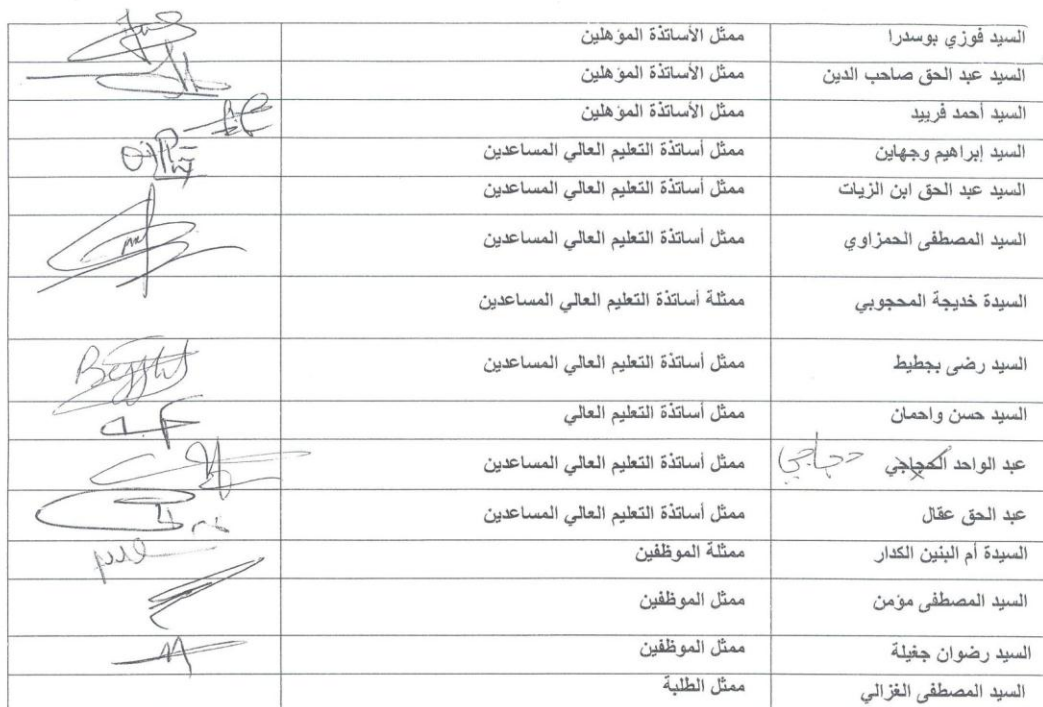 السيد فوزي بوسدرا ممثل الأساتذة المؤهلين
السيد عبد الحق صاحب الدين ممثل الأساتذة المؤهلين
السيد أحمد فريبد ممثل الأساتذة المؤهلين
السيد إبراهيم وجهاين ممثل أساتذة التعليم العالي المساعدين
السيد عبد الحق ابن الزيات ممثل أساتذة التعليم العالي المساعدين
السيد المصطفى الحمزاوي ممثل أساتذة التعليم العالي المساعدين
السيدة خديجة المحجوبي ممثلة أساتذة التعليم العالي المساعدين
السيد رضى بجطيط ممثل أساتذة التعليم العالي المساعدين
السيد حسن واحمان ممثل أساتذة التعليم العالي
عبد الواحد الحجاجي حجاجي ممثل أساتذة التعليم العالي المساعدين
عبد الحق عقال ممثل أساتذة التعليم العالي المساعدين
السيدة أم البنين الكدار ممثلة الموظفين
السيد المصطفى مؤمن ممثل الموظفين
السيد رضوان جغيلة ممثل الموظفين
السيد المصطفى الغزالي ممثل الطلبة